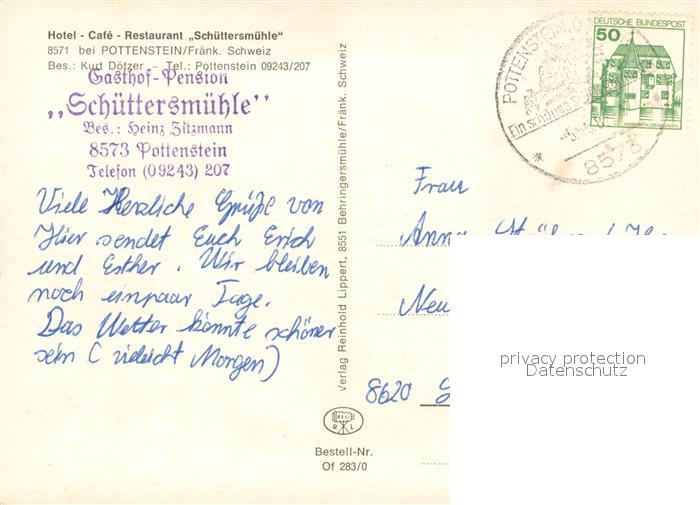 Hotel - Café - Restaurant „Schüttersmühle"
8571 bei POTTENSTEIN/Fränk. Schweiz
Bes.: Kurt Dötzer – Tel.: Pottenstein 09243/207
Gasthof-Pension
„Schüttersmühle"
Bes.: Heinz Zitzmann
8573 Pottenstein
Telefon (09243) 207
Viele Herzliche Grüße von
Hier sendet Euch Erich
und Esther. Wir bleiben
noch einpaar Tage.
Das Wetter könnte schöner
sein (vieleicht Morgen)
Verlag Reinhold Lippert, 8551 Behringersmühle/Fränk. Schweiz
RELI
R L
Bestell-Nr.
Of 283/0
POTTENSTEIN
Ein schönes
8573
DEUTSCHE BUNDESPOST
50
Frau
Anna
Neu
8620
privacy protection
Datenschutz